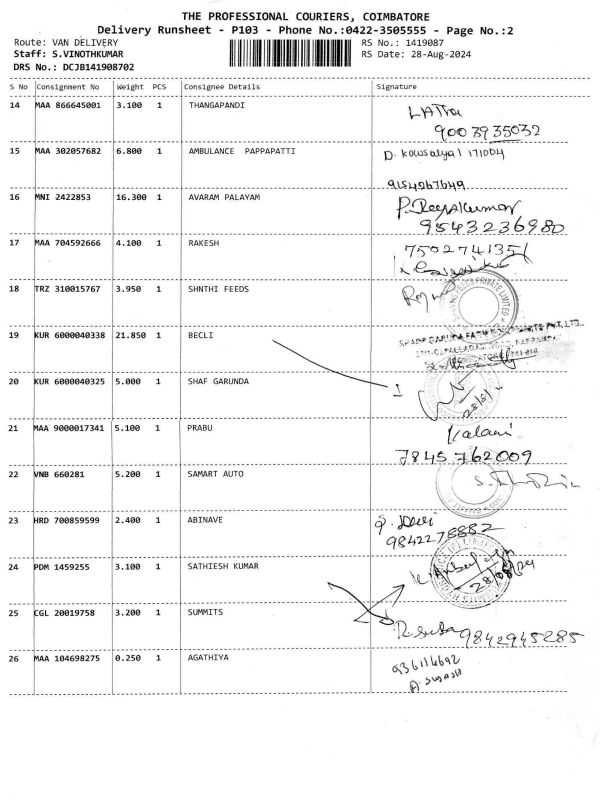 THE PROFESSIONAL COURIERS, COIMBATORE
Delivery Runsheet - P103 - Phone No.:0422-3505555 - Page No.:2
Route: VAN DELIVERY
RS No.: 1419087
Staff: S.VINOTHKUMAR
RS Date: 28-Aug-2024
DRS No.: DCJB141908702
S No Consignment No Weight PCS Consignee Details Signature
14 MAA 866645001 3.100 1 THANGAPANDI
Latha
9003935032
15 MAA 302057682 6.800 1 AMBULANCE PAPPAPATTI
D. Kowsalya
16 MNI 2422853 16.300 1 AVARAM PALAYAM
P. Deepakumar
9543236980
17 MAA 704592666 4.100 1 RAKESH
7502741351
18 TRZ 310015767 3.950 1 SHNTHI FEEDS
PRIVATE LIMITED
19 KUR 6000040338 21.850 1 BECLI
20 KUR 6000040325 5.000 1 SHAF GARUNDA
28/8/
21 MAA 9000017341 5.100 1 PRABU
Kalani
7845762009
22 VNB 660281 5.200 1 SAMART AUTO
23 HRD 700859599 2.400 1 ABINAVE
9842278882
24 PDM 1459255 3.100 1 SATHIESH KUMAR
28/08/24
25 CGL 20019758 3.200 1 SUMMITS
9842945285
26 MAA 104698275 0.250 1 AGATHIYA